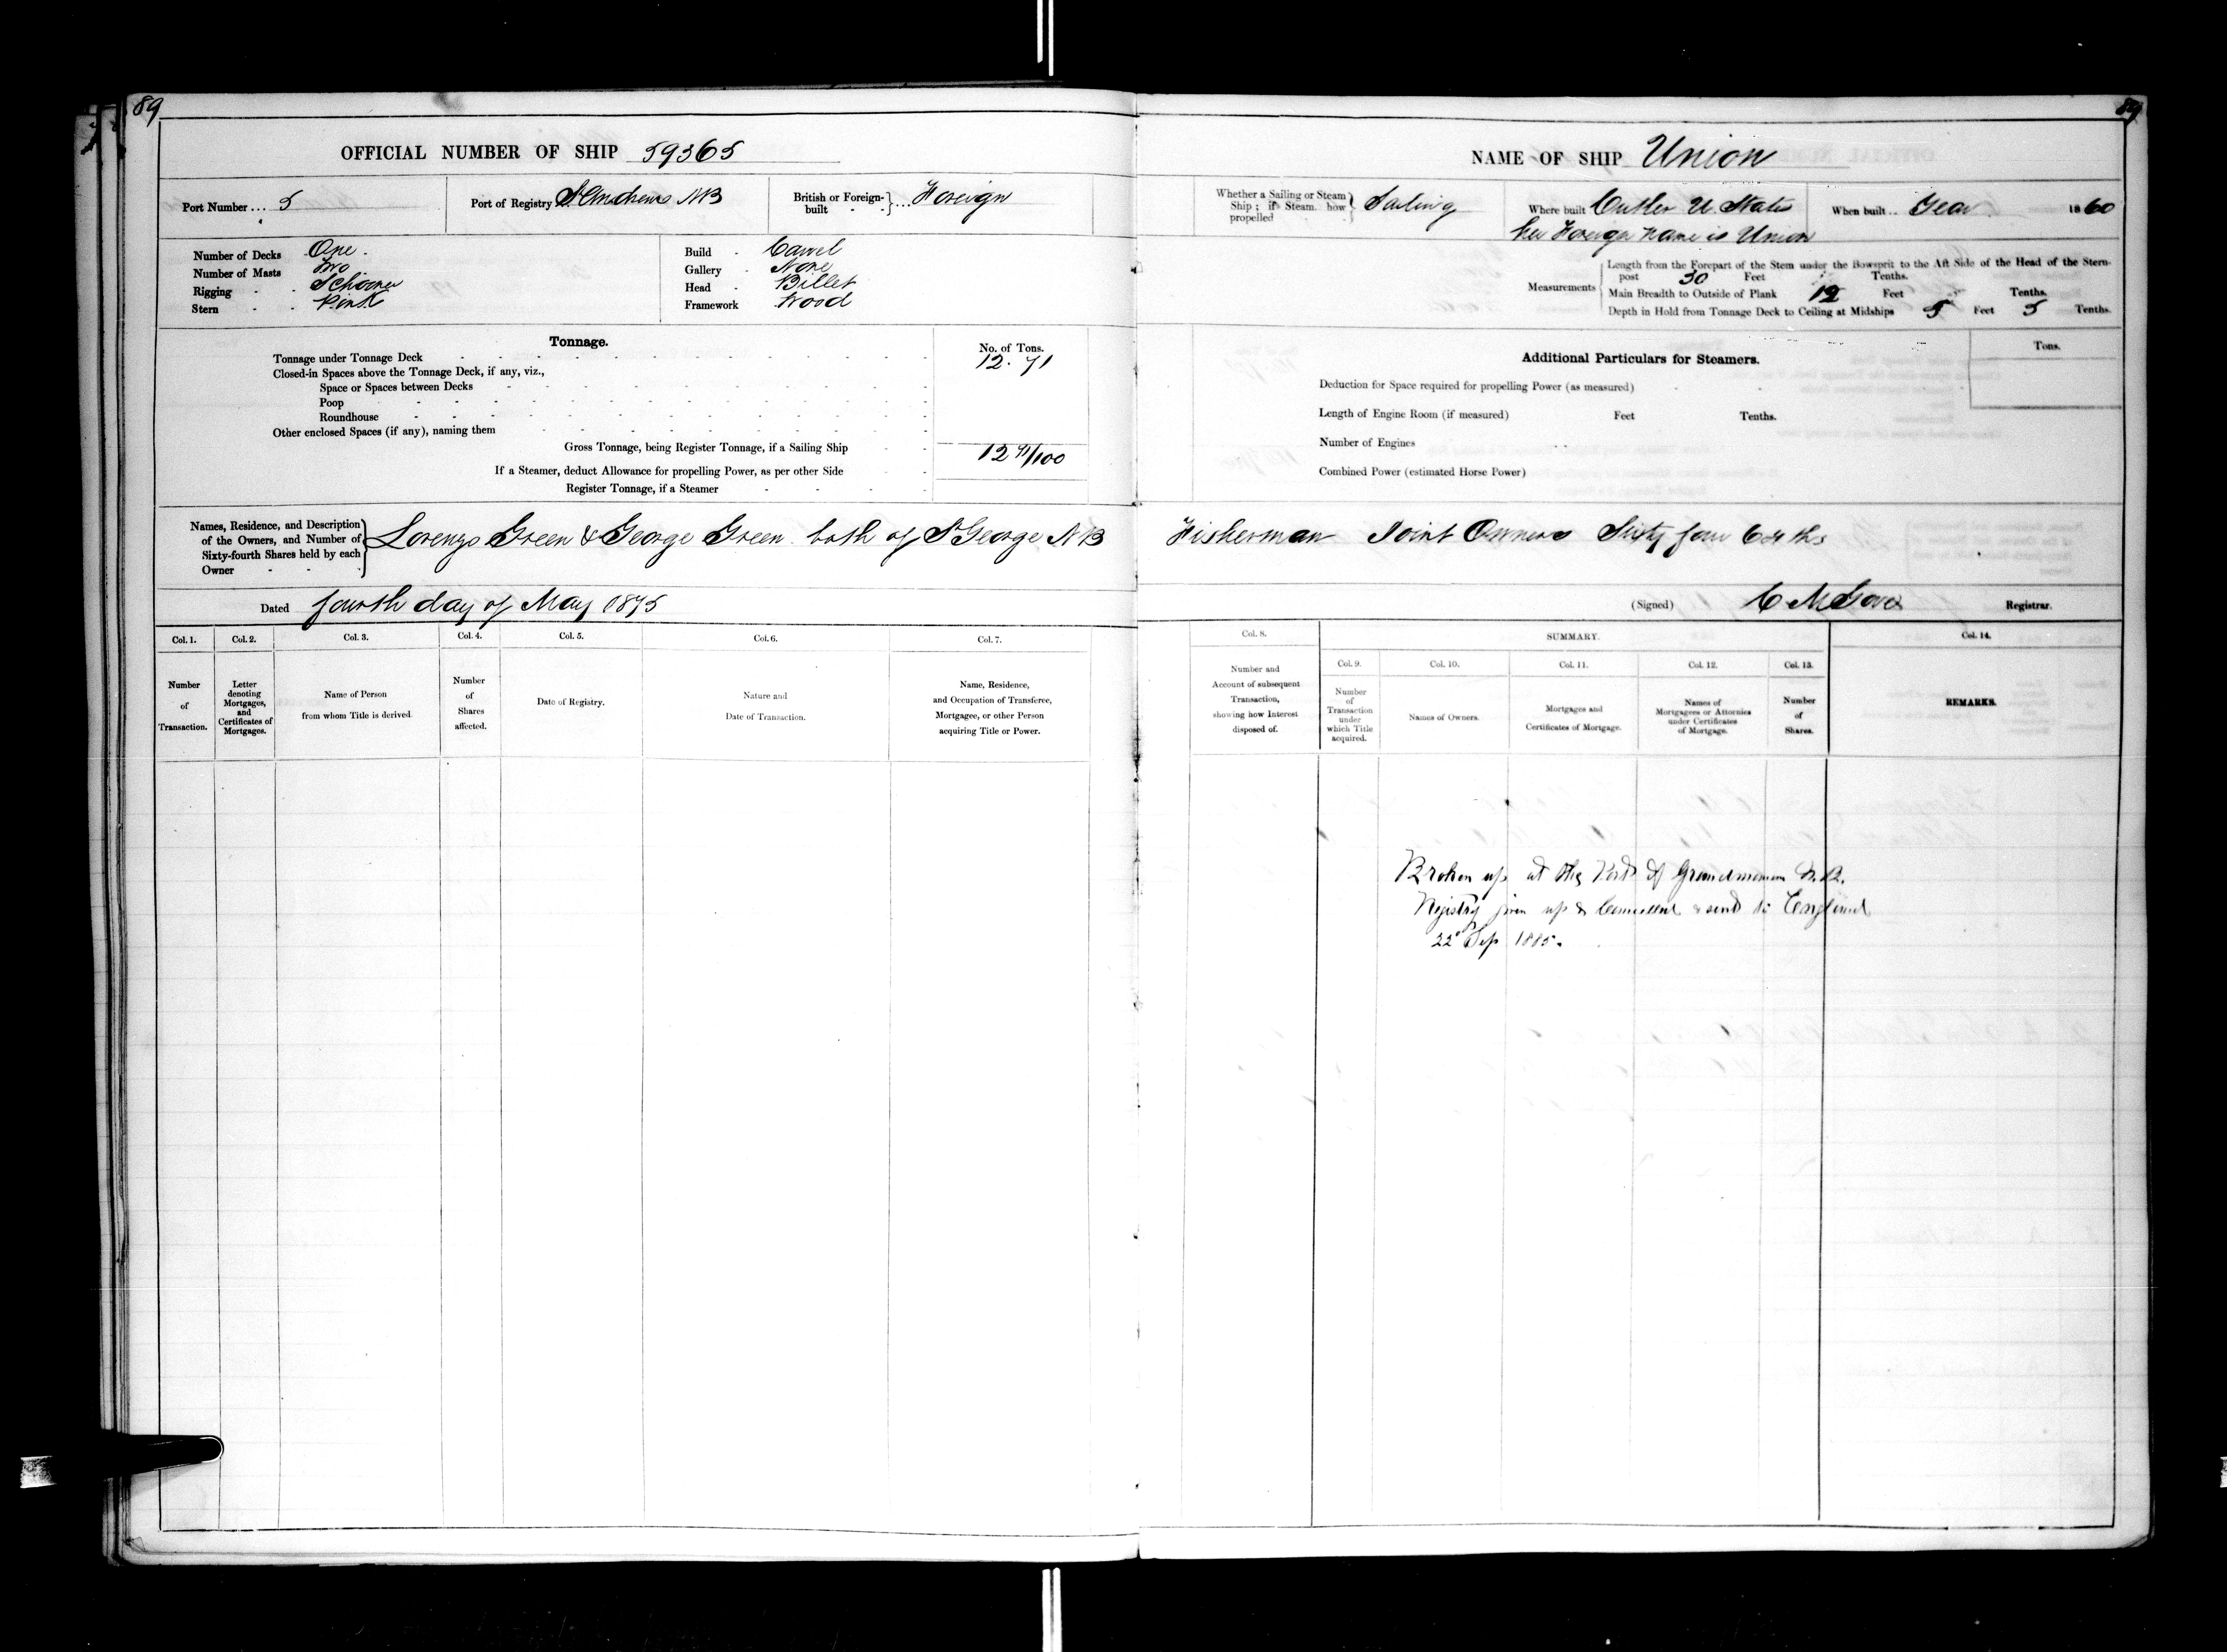 89
OFFICIAL NUMBER OF SHIP 59365
Port Number ... 5
Port of Registry St Andrews NB
British or Foreign-built } ... Foreign
Number of Decks One.
Number of Masts Two
Rigging Schooner
Stern Pink
Build Carvel
Gallery None
Head Billet
Framework Wood
Tonnage.
No. of Tons.
Tonnage under Tonnage Deck 12.71
Closed-in Spaces above the Tonnage Deck, if any, viz.,
Space or Spaces between Decks
Poop
Roundhouse
Other enclosed Spaces (if any), naming them
Gross Tonnage, being Register Tonnage, if a Sailing Ship 12 71/100
If a Steamer, deduct Allowance for propelling Power, as per other Side
Register Tonnage, if a Steamer
Names, Residence, and Description of the Owners, and Number of Sixty-fourth Shares held by each Owner } Lorenzo Green & George Green both of St George NB
Dated fourth day of May 1875
Col. 1. Col. 2. Col. 3. Col. 4. Col. 5. Col. 6. Col. 7.
Number of Transaction.
Letter denoting Mortgages, and Certificates of Mortgages.
Name of Person from whom Title is derived.
Number of Shares affected.
Date of Registry.
Nature and Date of Transaction.
Name, Residence, and Occupation of Transferee, Mortgagee, or other Person acquiring Title or Power.
89
NAME OF SHIP Union
Whether a Sailing or Steam Ship; if Steam, how propelled } Sailing
Where built Cutler U. States
her Foreign name is Union
When built .. Year 1860
Measurements
Length from the Forepart of the Stem under the Bowsprit to the Aft Side of the Head of the Stern-post 30 Feet Tenths.
Main Breadth to Outside of Plank 12 Feet Tenths.
Depth in Hold from Tonnage Deck to Ceiling at Midships 5 Feet 5 Tenths.
Additional Particulars for Steamers.
Tons.
Deduction for Space required for propelling Power (as measured)
Length of Engine Room (if measured) Feet Tenths.
Number of Engines
Combined Power (estimated Horse Power)
Fisherman Joint Owners Sixty four 64ths
(Signed) C M Gove Registrar.
Col. 8. SUMMARY. Col. 14.
Col. 9. Col. 10. Col. 11. Col. 12. Col. 13.
Number and Account of subsequent Transaction, showing how Interest disposed of.
Number of Transaction under which Title acquired.
Names of Owners.
Mortgages and Certificates of Mortgage.
Names of Mortgagees or Attornies under Certificates of Mortgage.
Number of Shares.
REMARKS.
Broken up at the Port of Grandmanan N.B.
Registry given up & Cancelled & send to England
22d Sep 1885.